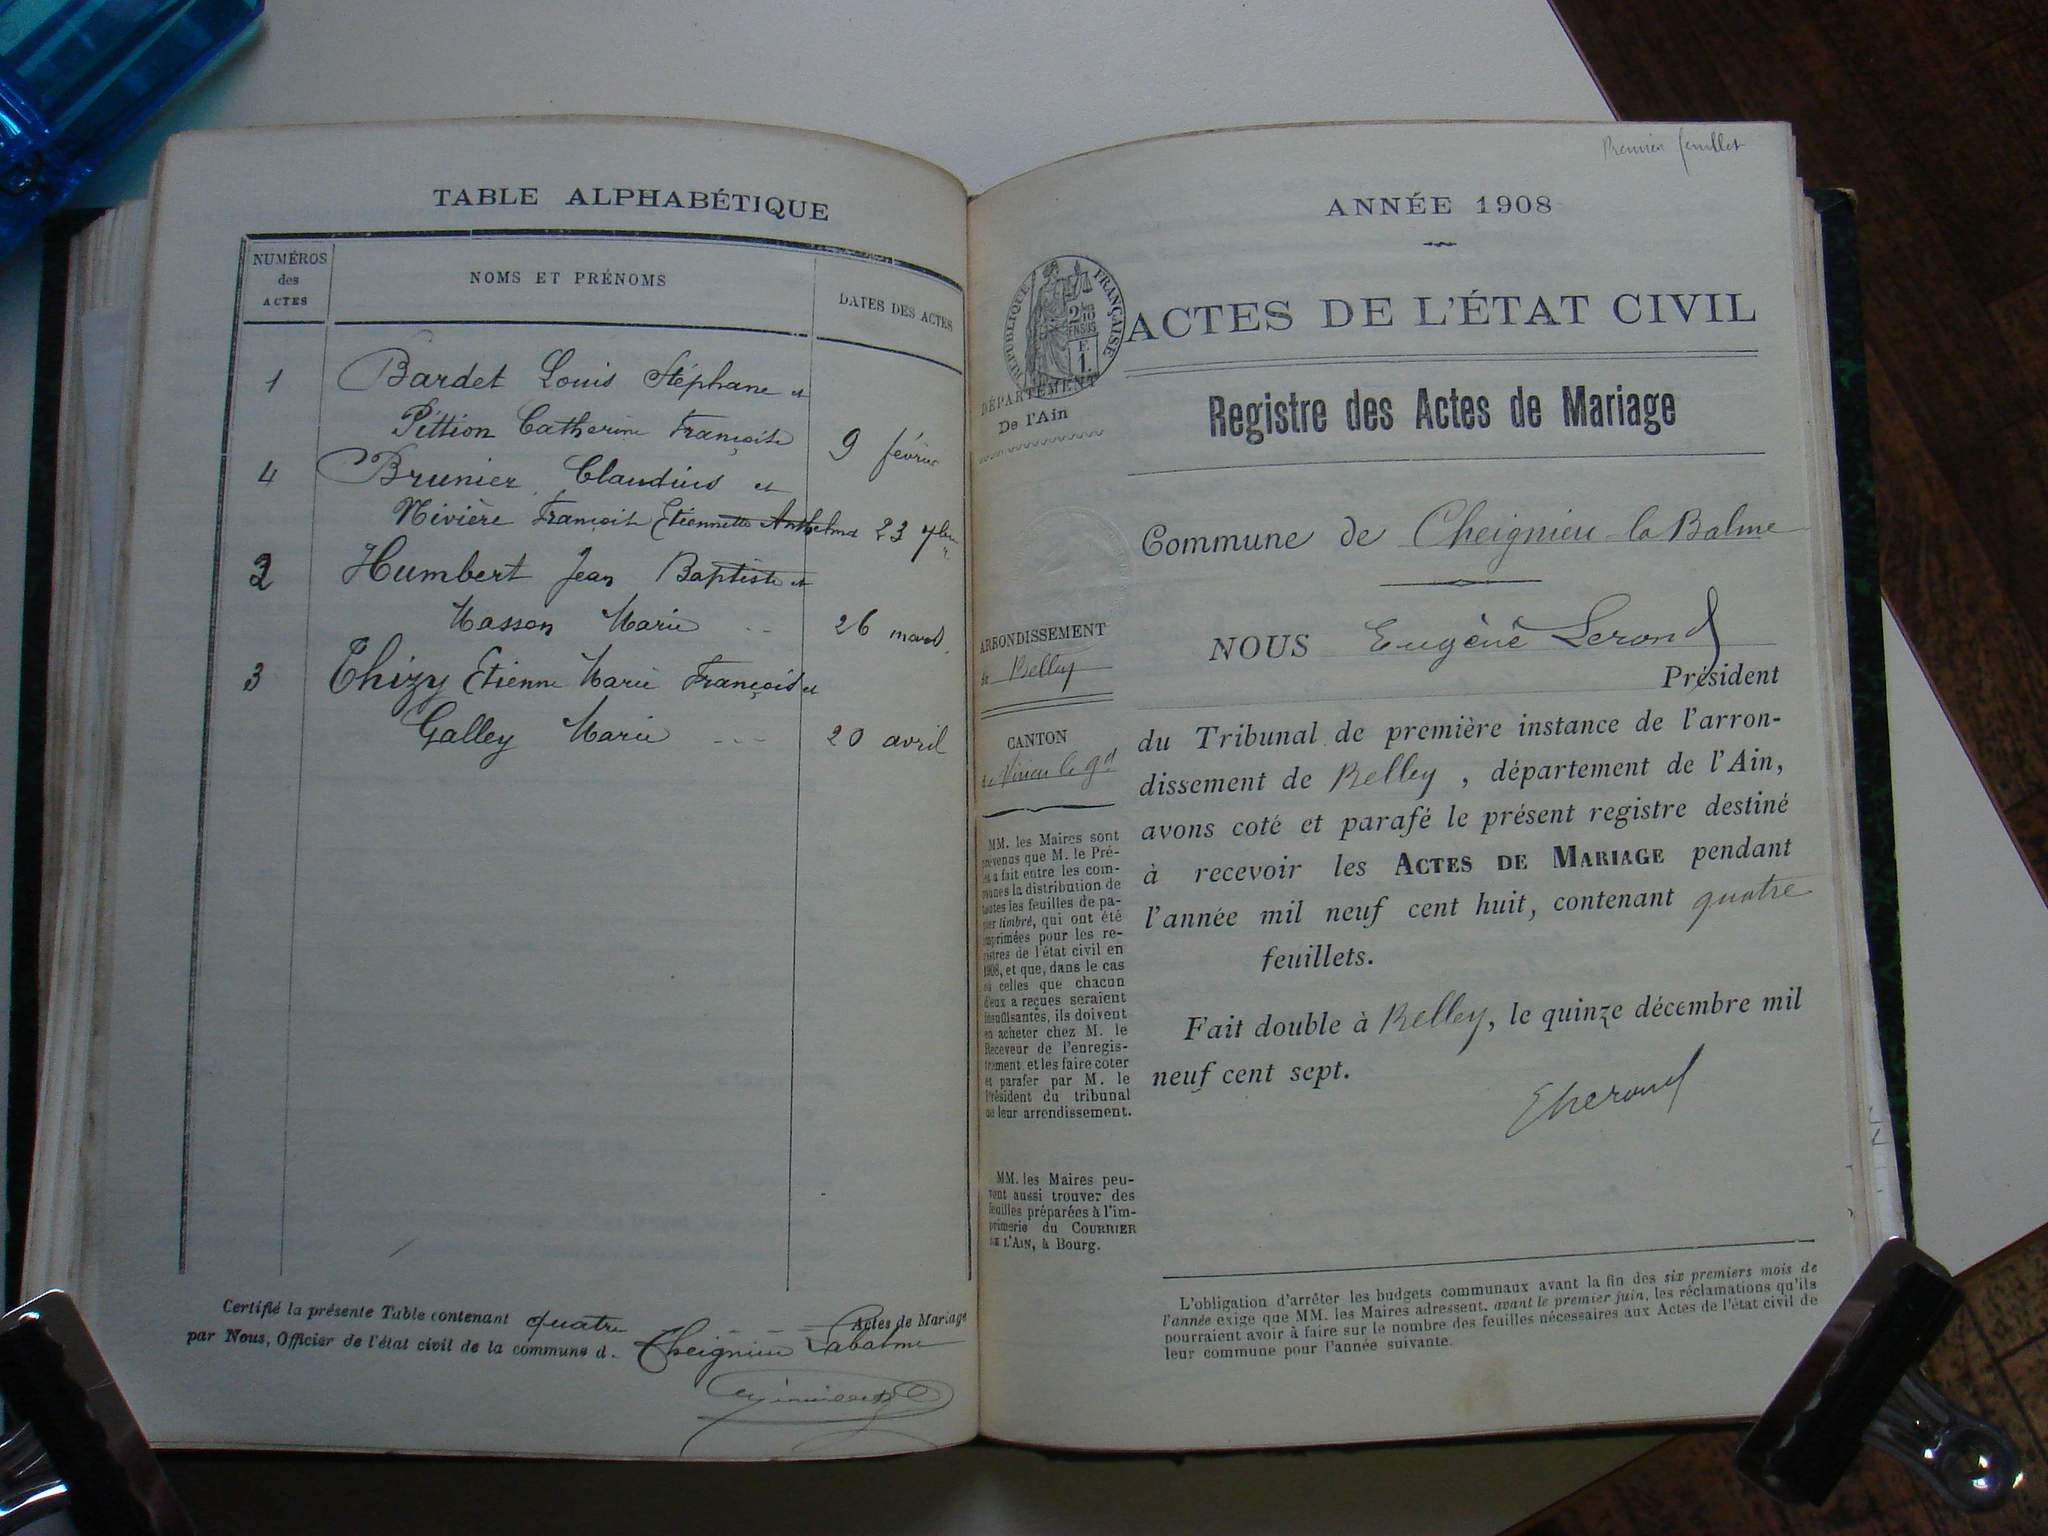 TABLE ALPHABÉTIQUE
NUMÉROS
des
ACTES
NOMS ET PRÉNOMS
DATES DES ACTES
1 Bardet Louis Stéphane et
Pittion Catherine Françoise 9 février
4 Brunier Claudius et
Nivière Françoise Etiennette Anthelma 23 7bre
2 Humbert Jean Baptiste et
Masson Marie 26 mars
3 Thizy Etienne Marie François et
Galley Marie 20 avril
Certifié la présente Table contenant quatre Actes de Mariage
par Nous, Officier de l'état civil de la commune d. Cheignieu Labalme
Premier feuillet
ANNÉE 1908
RÉPUBLIQUE FRANÇAISE
ACTES DE L'ÉTAT CIVIL
DÉPARTEMENT
De l'Ain
Registre des Actes de Mariage
Commune de Cheignieu la Balme
ARRONDISSEMENT
de Belley
CANTON
de Virieu le gd
NOUS Eugène Lerond
Président
du Tribunal de première instance de l'arron-
dissement de Belley, département de l'Ain,
avons coté et parafé le présent registre destiné
à recevoir les ACTES DE MARIAGE pendant
l'année mil neuf cent huit, contenant quatre
feuillets.
Fait double à Belley, le quinze décembre mil
neuf cent sept.
MM. les Maires sont
prévenus que M. le Pré-
fet a fait entre les com-
munes la distribution de
toutes les feuilles de pa-
pier timbré, qui ont été
imprimées pour les re-
gistres de l'état civil en
1908, et que, dans le cas
où celles que chacun
d'eux a reçues seraient
insuffisantes, ils doivent
en acheter chez M. le
Receveur de l'enregis-
trement, et les faire coter
et parafer par M. le
Président du tribunal
de leur arrondissement.
MM. les Maires peu-
vent aussi trouver des
feuilles préparées à l'im-
primerie du COURRIER
DE L'AIN, à Bourg.
L'obligation d'arrêter les budgets communaux avant la fin des six premiers mois de
l'année exige que MM. les Maires adressent, avant le premier juin, les réclamations qu'ils
pourraient avoir à faire sur le nombre des feuilles nécessaires aux Actes de l'état civil de
leur commune pour l'année suivante.